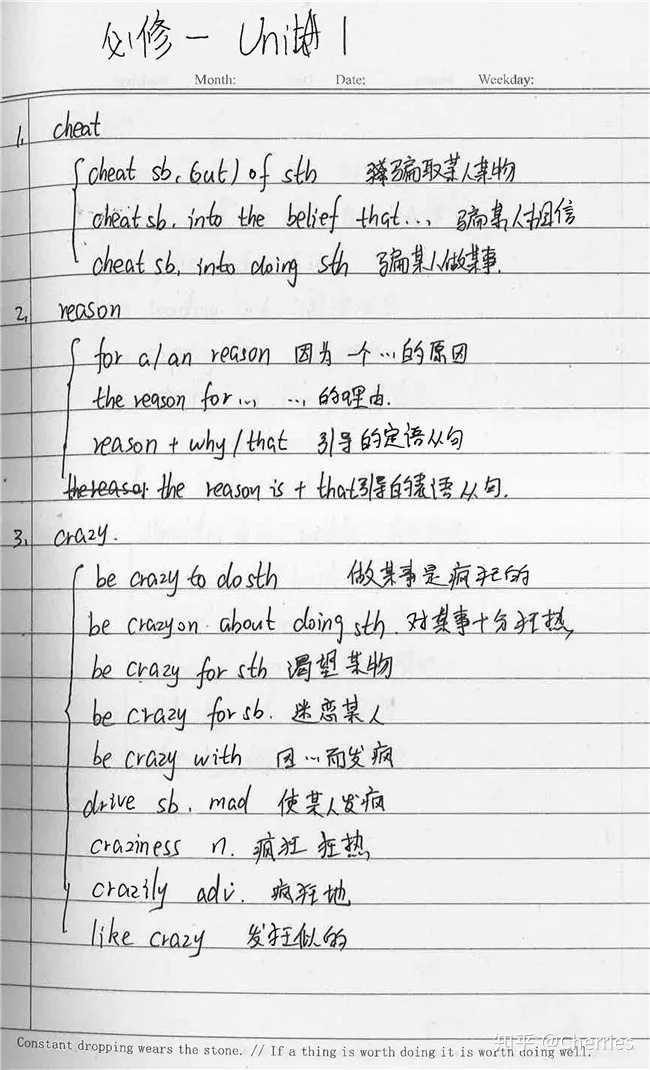 必修一 Unit 1
Month: Date: Weekday:
1. cheat
cheat sb. (out) of sth 骗取某人某物
cheat sb. into the belief that... 骗某人相信
cheat sb. into doing sth 骗某人做某事.
2. reason
for a/an reason 因为一个…的原因
the reason for... …的理由.
reason + why/that 引导的定语从句
the reason is + that引导的表语从句.
3. crazy.
be crazy to do sth 做某事是疯狂的
be crazy on about doing sth. 对某事十分狂热,
be crazy for sth 渴望某物
be crazy for sb. 迷恋某人
be crazy with 因…而发疯
drive sb. mad 使某人发疯
craziness n. 疯狂 狂热
crazily adv. 疯狂地
like crazy 发狂似的
知乎 @Cherries
Constant dropping wears the stone. // If a thing is worth doing it is worth doing well.